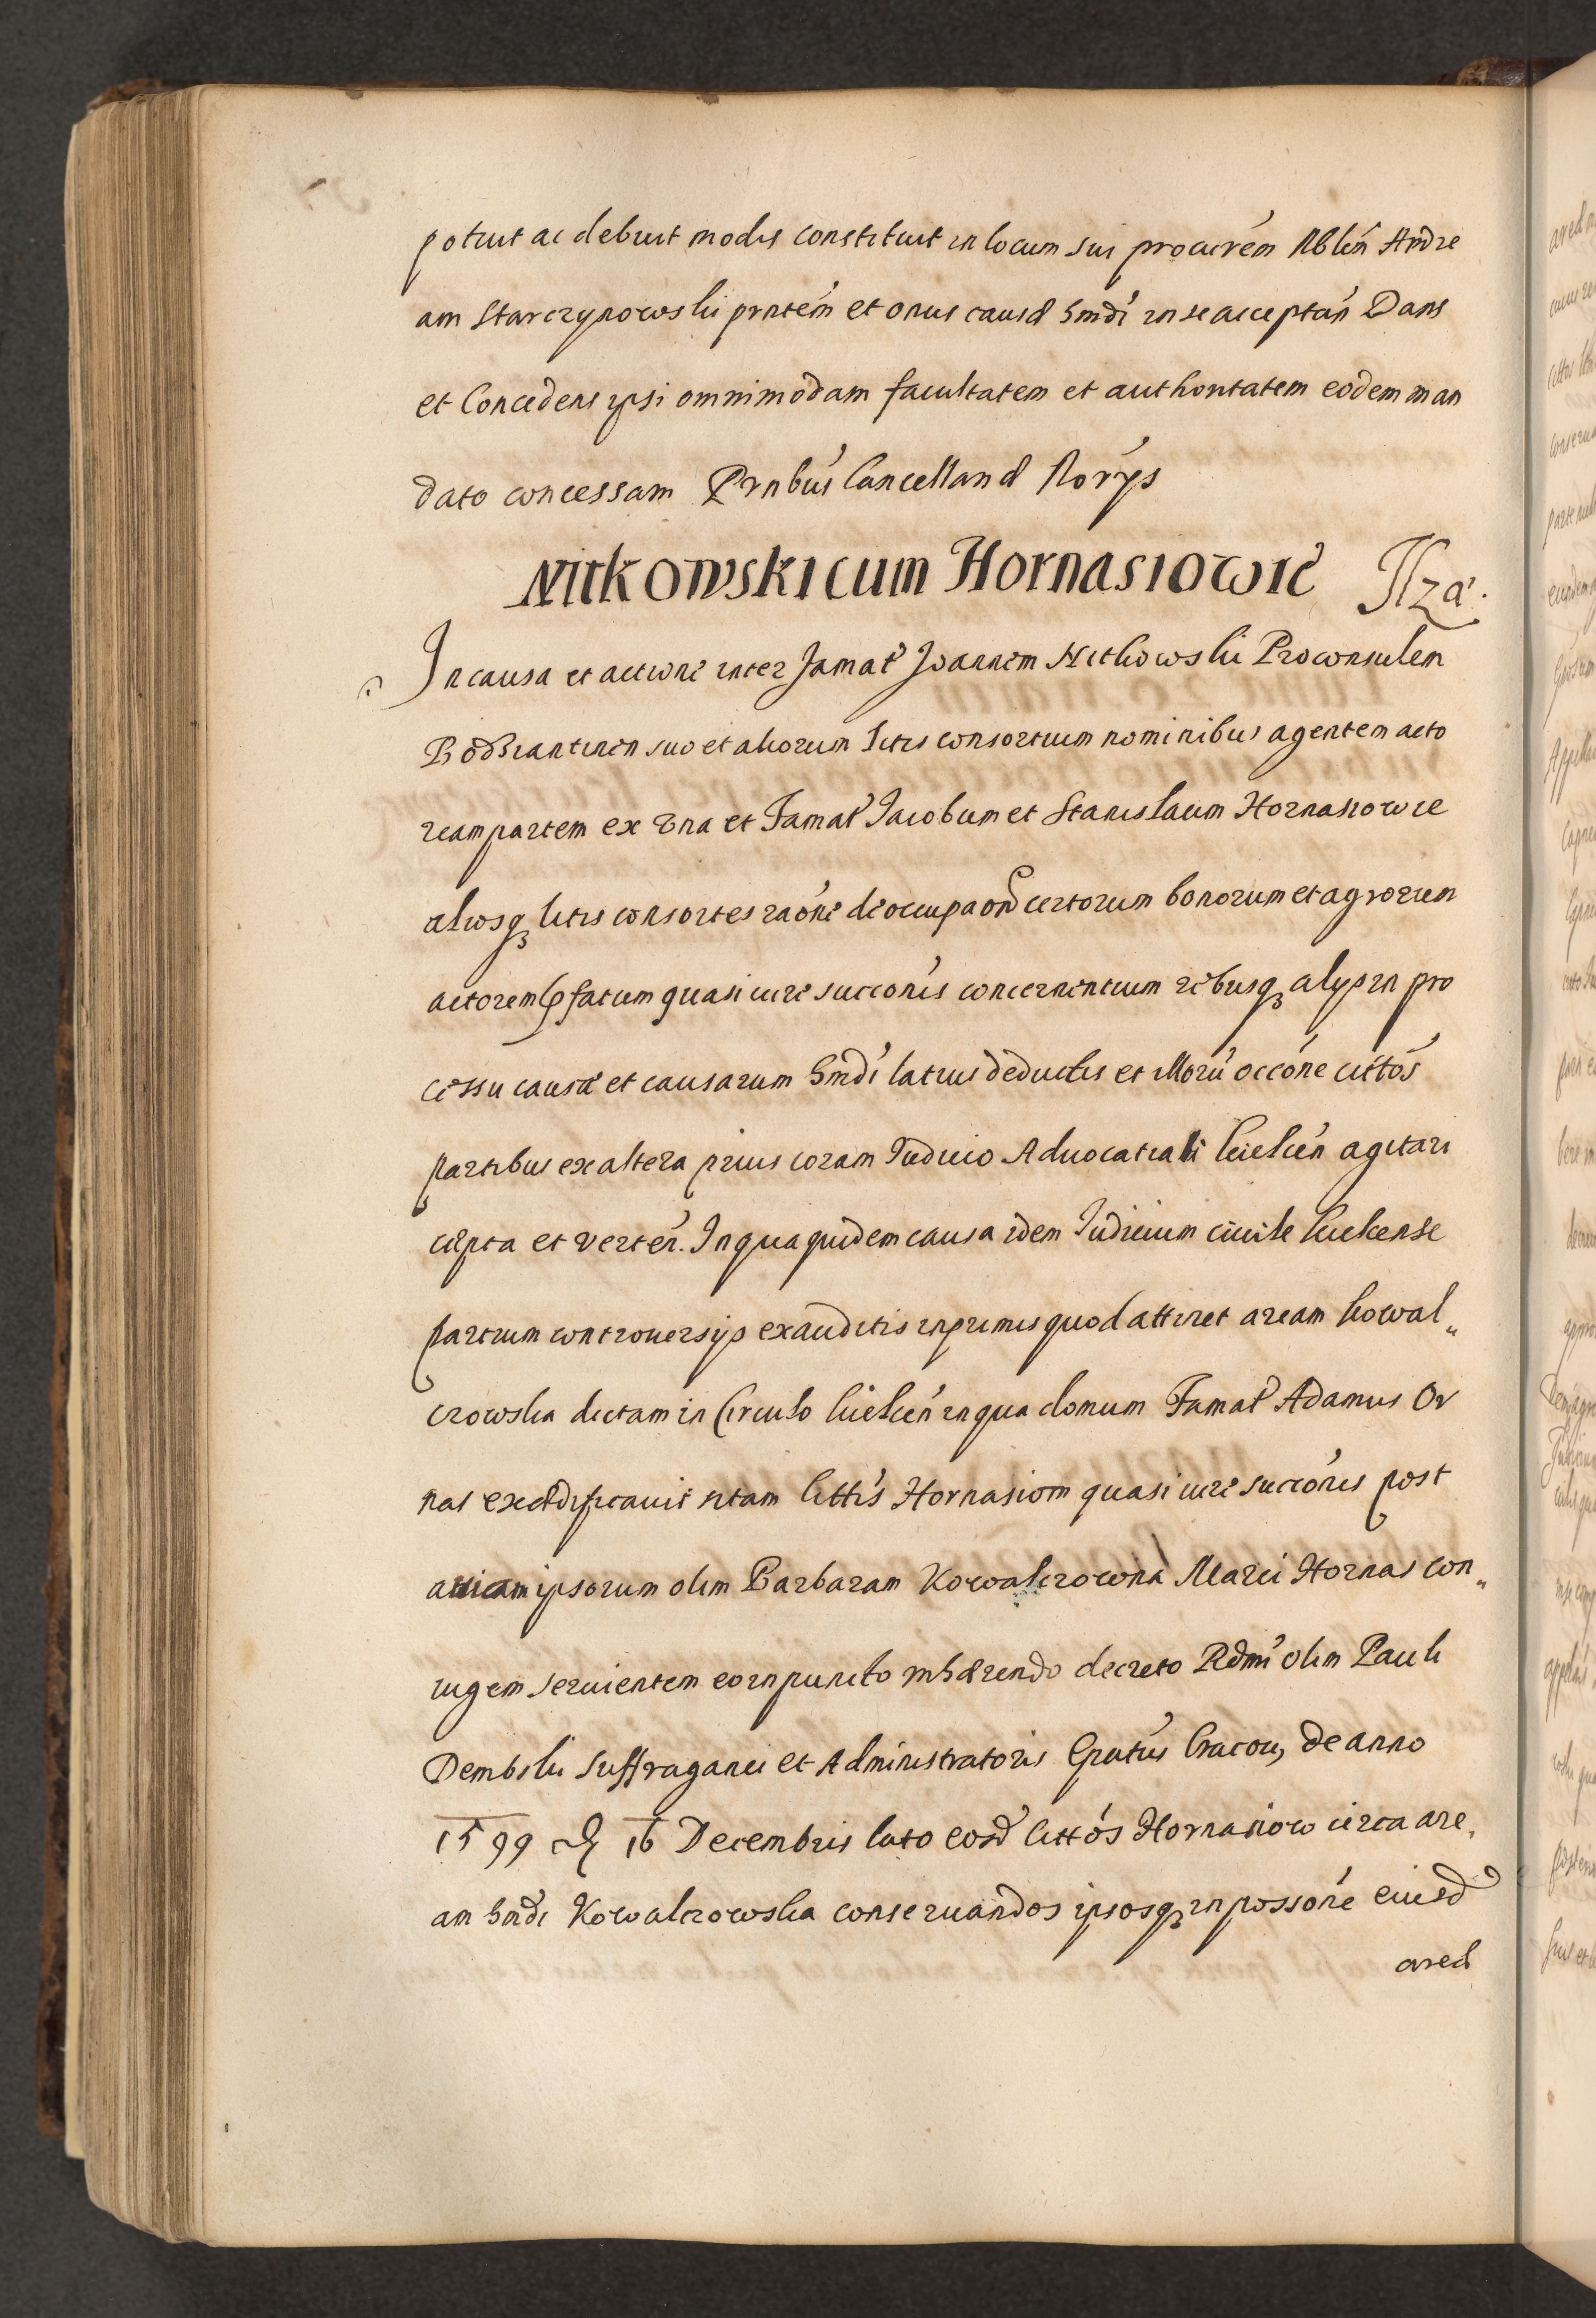 potuit ac debuit modis constituit in locum sui procurem Nblem Andre
am Starczynowski pntem et onus causæ hmdi in se acceptan Dans
et Concedens ipsi omnimodam facultatem et authoritatem eodem man
dato concessam Pntibus Cancellariæ Norys
Nitkowski cum Hornasiowic Ilza.
In causa et actione inter famat Joannem Nitkowski Proconsulem
Bodzantinen suo et aliorum litis consortium nominibus agentem acto
ream partem ex una et Famat Jacobum et Stanislaum Hornasiowie
aliosq litis consortes raone de occupaone certorum bonorum et agrorum
actorem pfatum quasi iure succonis concernentium rebusq alys in pro
cessu causæ et causarum hmdi latius deductis et illoru occone cittos
partibus ex altera prius coram Judicio Aduocatiali kielcen agitari
cæpta et verten. In qua quidem causa idem Judicium ciuile kielcense
partium controuersys exauditis inprimis quod attinet aream kowal„
czowska dictam in Circulo kielcen in qua domum Famat Adamus Or
nas exædificauit sitam cittis Hornasiom quasi iure succonis post
auicam ipsorum olim Barbaram Kowalczowna Marci Hornas con„
iugem seruientem eo in puncto inhærendo decreto Rdmi olim Pauli
Dembski Suffraganei et Administratoris Epatus Cracou, de anno
1599 die 16 Decembris lato eosd cittos Hornasiow circa are,
am hmdi Kowalczowska conseruandos ipsosq in possone eiusd
areæ